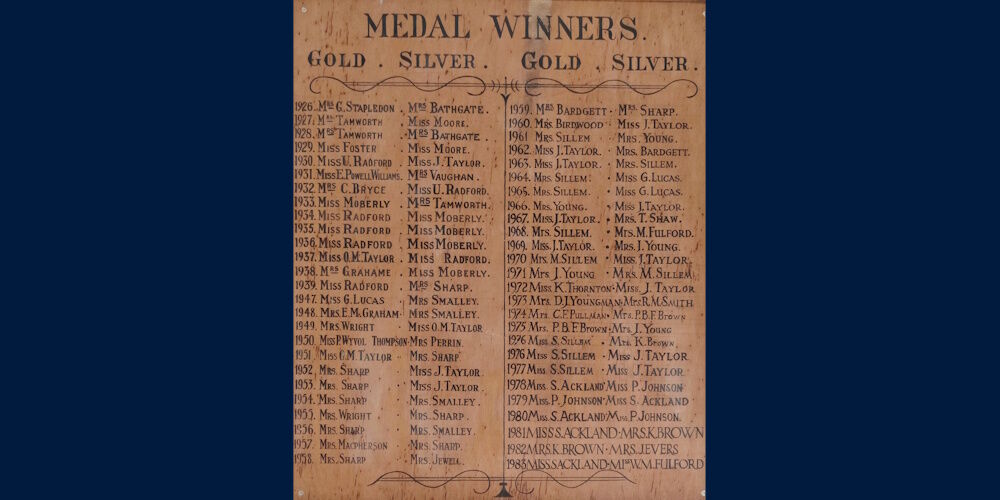 MEDAL WINNERS.
GOLD . SILVER. GOLD . SILVER.
1926. MRS G. STAPLEDON . MRS BATHGATE.
1927. TAMWORTH MISS MOORE.
1928. MRS TAMWORTH . MRS BATHGATE .
1929. MISS FOSTER . MISS MOORE.
1930. MISS U. RADFORD . MISS J. TAYLOR.
1931. MISS E. POWELL WILLIAMS. MRS VAUGHAN.
1932. MRS C. BRYCE . MISS U. RADFORD.
1933. MISS MOBERLY . MRS TAMWORTH.
1934. MISS RADFORD . MISS MOBERLY.
1935. MISS RADFORD . MISS MOBERLY.
1936. MISS RADFORD . MISS MOBERLY.
1937. MISS O.M. TAYLOR . MISS RADFORD.
1938. MRS GRAHAME . MISS MOBERLY.
1939. MISS RADFORD . MRS SHARP.
1947. MISS G. LUCAS . MRS SMALLEY.
1948. MRS. E. MCGRAHAM . MRS SMALLEY.
1949. MRS. WRIGHT . MISS O.M. TAYLOR
1950. MISS P. WYVOL THOMPSON . MRS PERRIN.
1951. MISS TAYLOR . MRS. SHARP
1952. MRS. SHARP . MISS J. TAYLOR.
1953. MRS. SHARP . MISS J. TAYLOR.
1954. MRS. SHARP . MRS. SMALLEY.
1955. MRS. WRIGHT . MRS. SHARP.
1956. MRS. SHARP . MRS. SMALLEY.
1957. MRS. MACPHERSON . MRS. SHARP.
1958. MRS. SHARP . MRS. JEWELL.
1959. MRS BARDGETT . MRS. SHARP.
1960. MRS. BIRDWOOD . MISS J. TAYLOR.
1961 MRS. SILLEM . MRS. YOUNG.
1962. MISS J. TAYLOR. . MRS. BARDGETT.
1963. MISS J. TAYLOR. . MRS. SILLEM.
1964. MRS. SILLEM . MISS G. LUCAS.
1965. MRS. SILLEM. . MISS G. LUCAS.
1966. MRS. YOUNG. . MISS J. TAYLOR.
1967. MISS. J. TAYLOR. . MRS. T. SHAW.
1968. MRS. SILLEM. . MRS. M. FULFORD.
1969. MISS. J. TAYLOR. . MRS. J. YOUNG.
1970 MRS. M. SILLEM . MISS. J. TAYLOR.
1971 MRS J. YOUNG . MRS. M. SILLEM
1972 MISS. K. THORNTON . MISS. J. TAYLOR
1973 MRS. D.J. YOUNGMAN . MRS R.M. SMITH
1974 MRS. C.F. PULLMAN . MRS. P.B.F. BROWN
1975 MRS. P.B.F. BROWN . MRS J. YOUNG
1976 MISS S. SILLEM . MRS. K. BROWN.
1976 MISS S. SILLEM . MISS J. TAYLOR
1977 MISS S. SILLEM . MISS J. TAYLOR
1978 MISS S. ACKLAND . MISS P. JOHNSON
1979 MISS. P. JOHNSON . MISS S. ACKLAND
1980 MISS. S. ACKLAND . MISS. P. JOHNSON.
1981 MISS S. ACKLAND . MRS. K. BROWN
1982 MRS. K. BROWN . MRS. J. EVERS
1983 MISS. S. ACKLAND . W.M. FULFORD